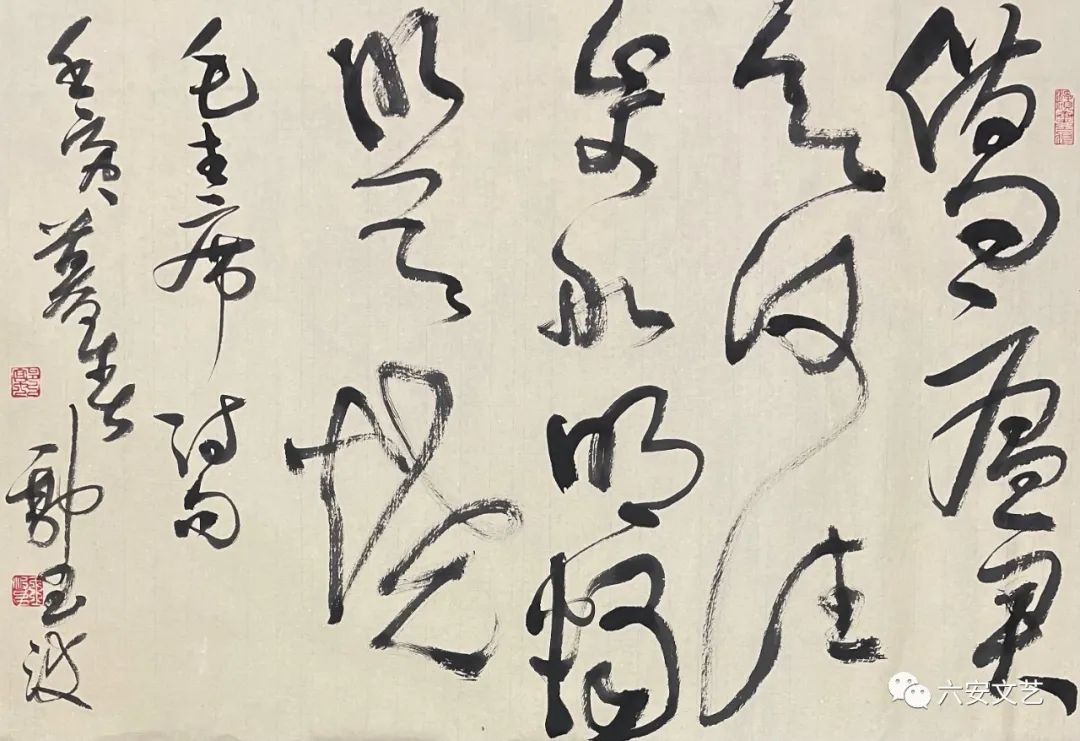 借問瘟君
欲何往
紙船明燭
照天燒
毛主席詩句
壬寅暮春
六安文艺